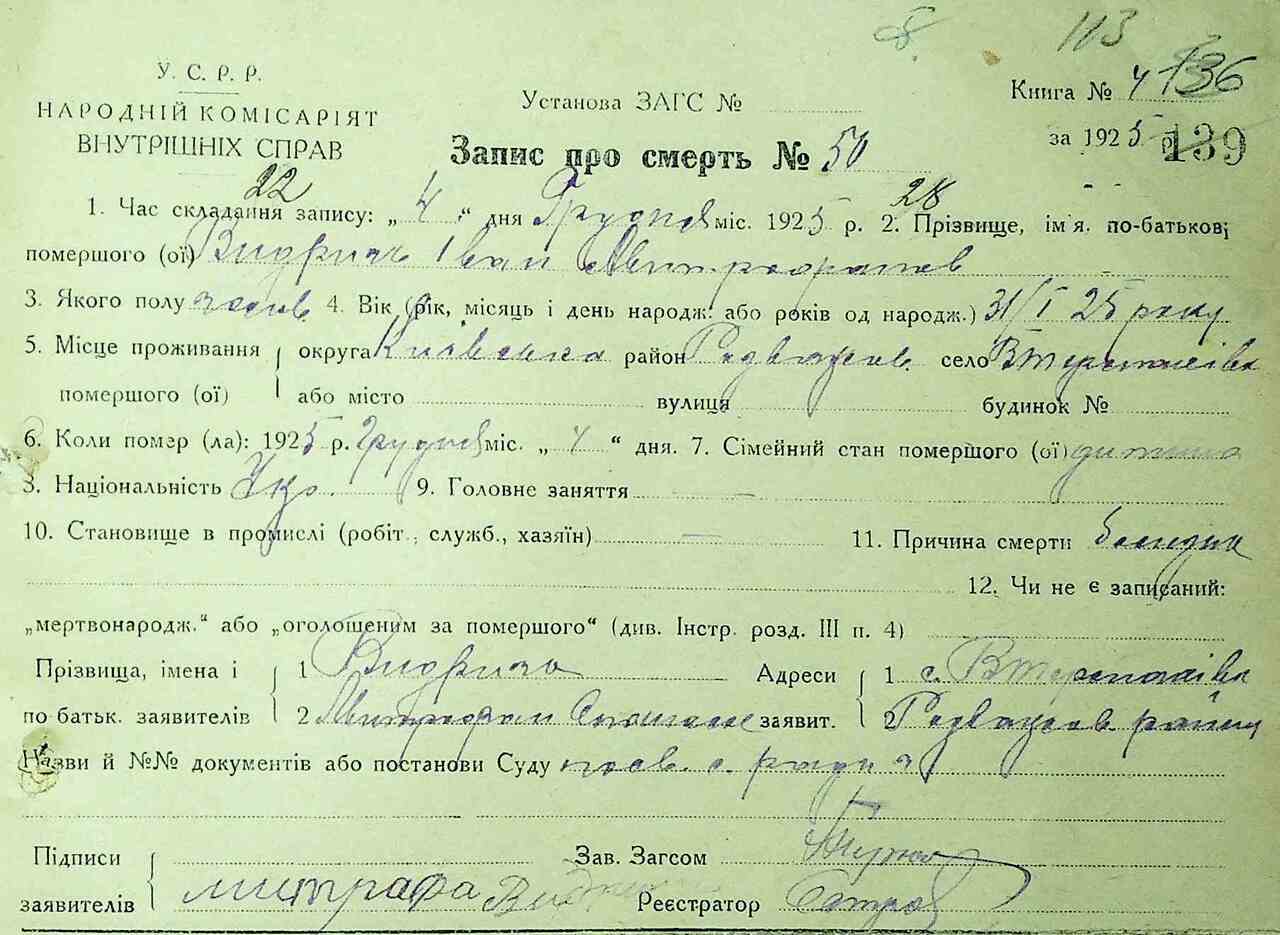 113
У. С. Р. Р.
НАРОДНІЙ КОМІСАРІЯТ
ВНУТРІШНІХ СПРАВ
Установа ЗАГС №
Книга № 4 136
за 1925 р. 139
Запис про смерть № 50
22 28
1. Час складання запису: „ 4 “ дня Грудня міс. 1925 р. 2. Прізвище, ім'я, по-батькові
помершого (ої) Видрич Іван Митрофанов
3. Якого полу чолов. 4. Вік (рік, місяць і день народж. або років од народж.) 31/I 25 року
5. Місце проживання округа Київська район Розважев. село
помершого (ої) або місто вулиця будинок №
6. Коли помер (ла): 1925 р. Грудня міс. „ 4 “ дня. 7. Сімейний стан помершого (ої) дитина
8. Національність Укр. 9. Головне заняття —
10. Становище в промислі (робіт., служб., хазяїн) — 11. Причина смерти
12. Чи не є записаний:
„мертвонародж.“ або „оголошеним за помершого“ (див. Інстр. розд. III п. 4)
Прізвища, імена і 1 Видрич Адреси 1 с.
по батьк. заявителів 2 Митрофан заявит. 2 Розважев. району
Назви й №№ документів або постанови Суду посв. с. ради
Підписи Зав. Загсом
заявителів митрафа Реєстратор